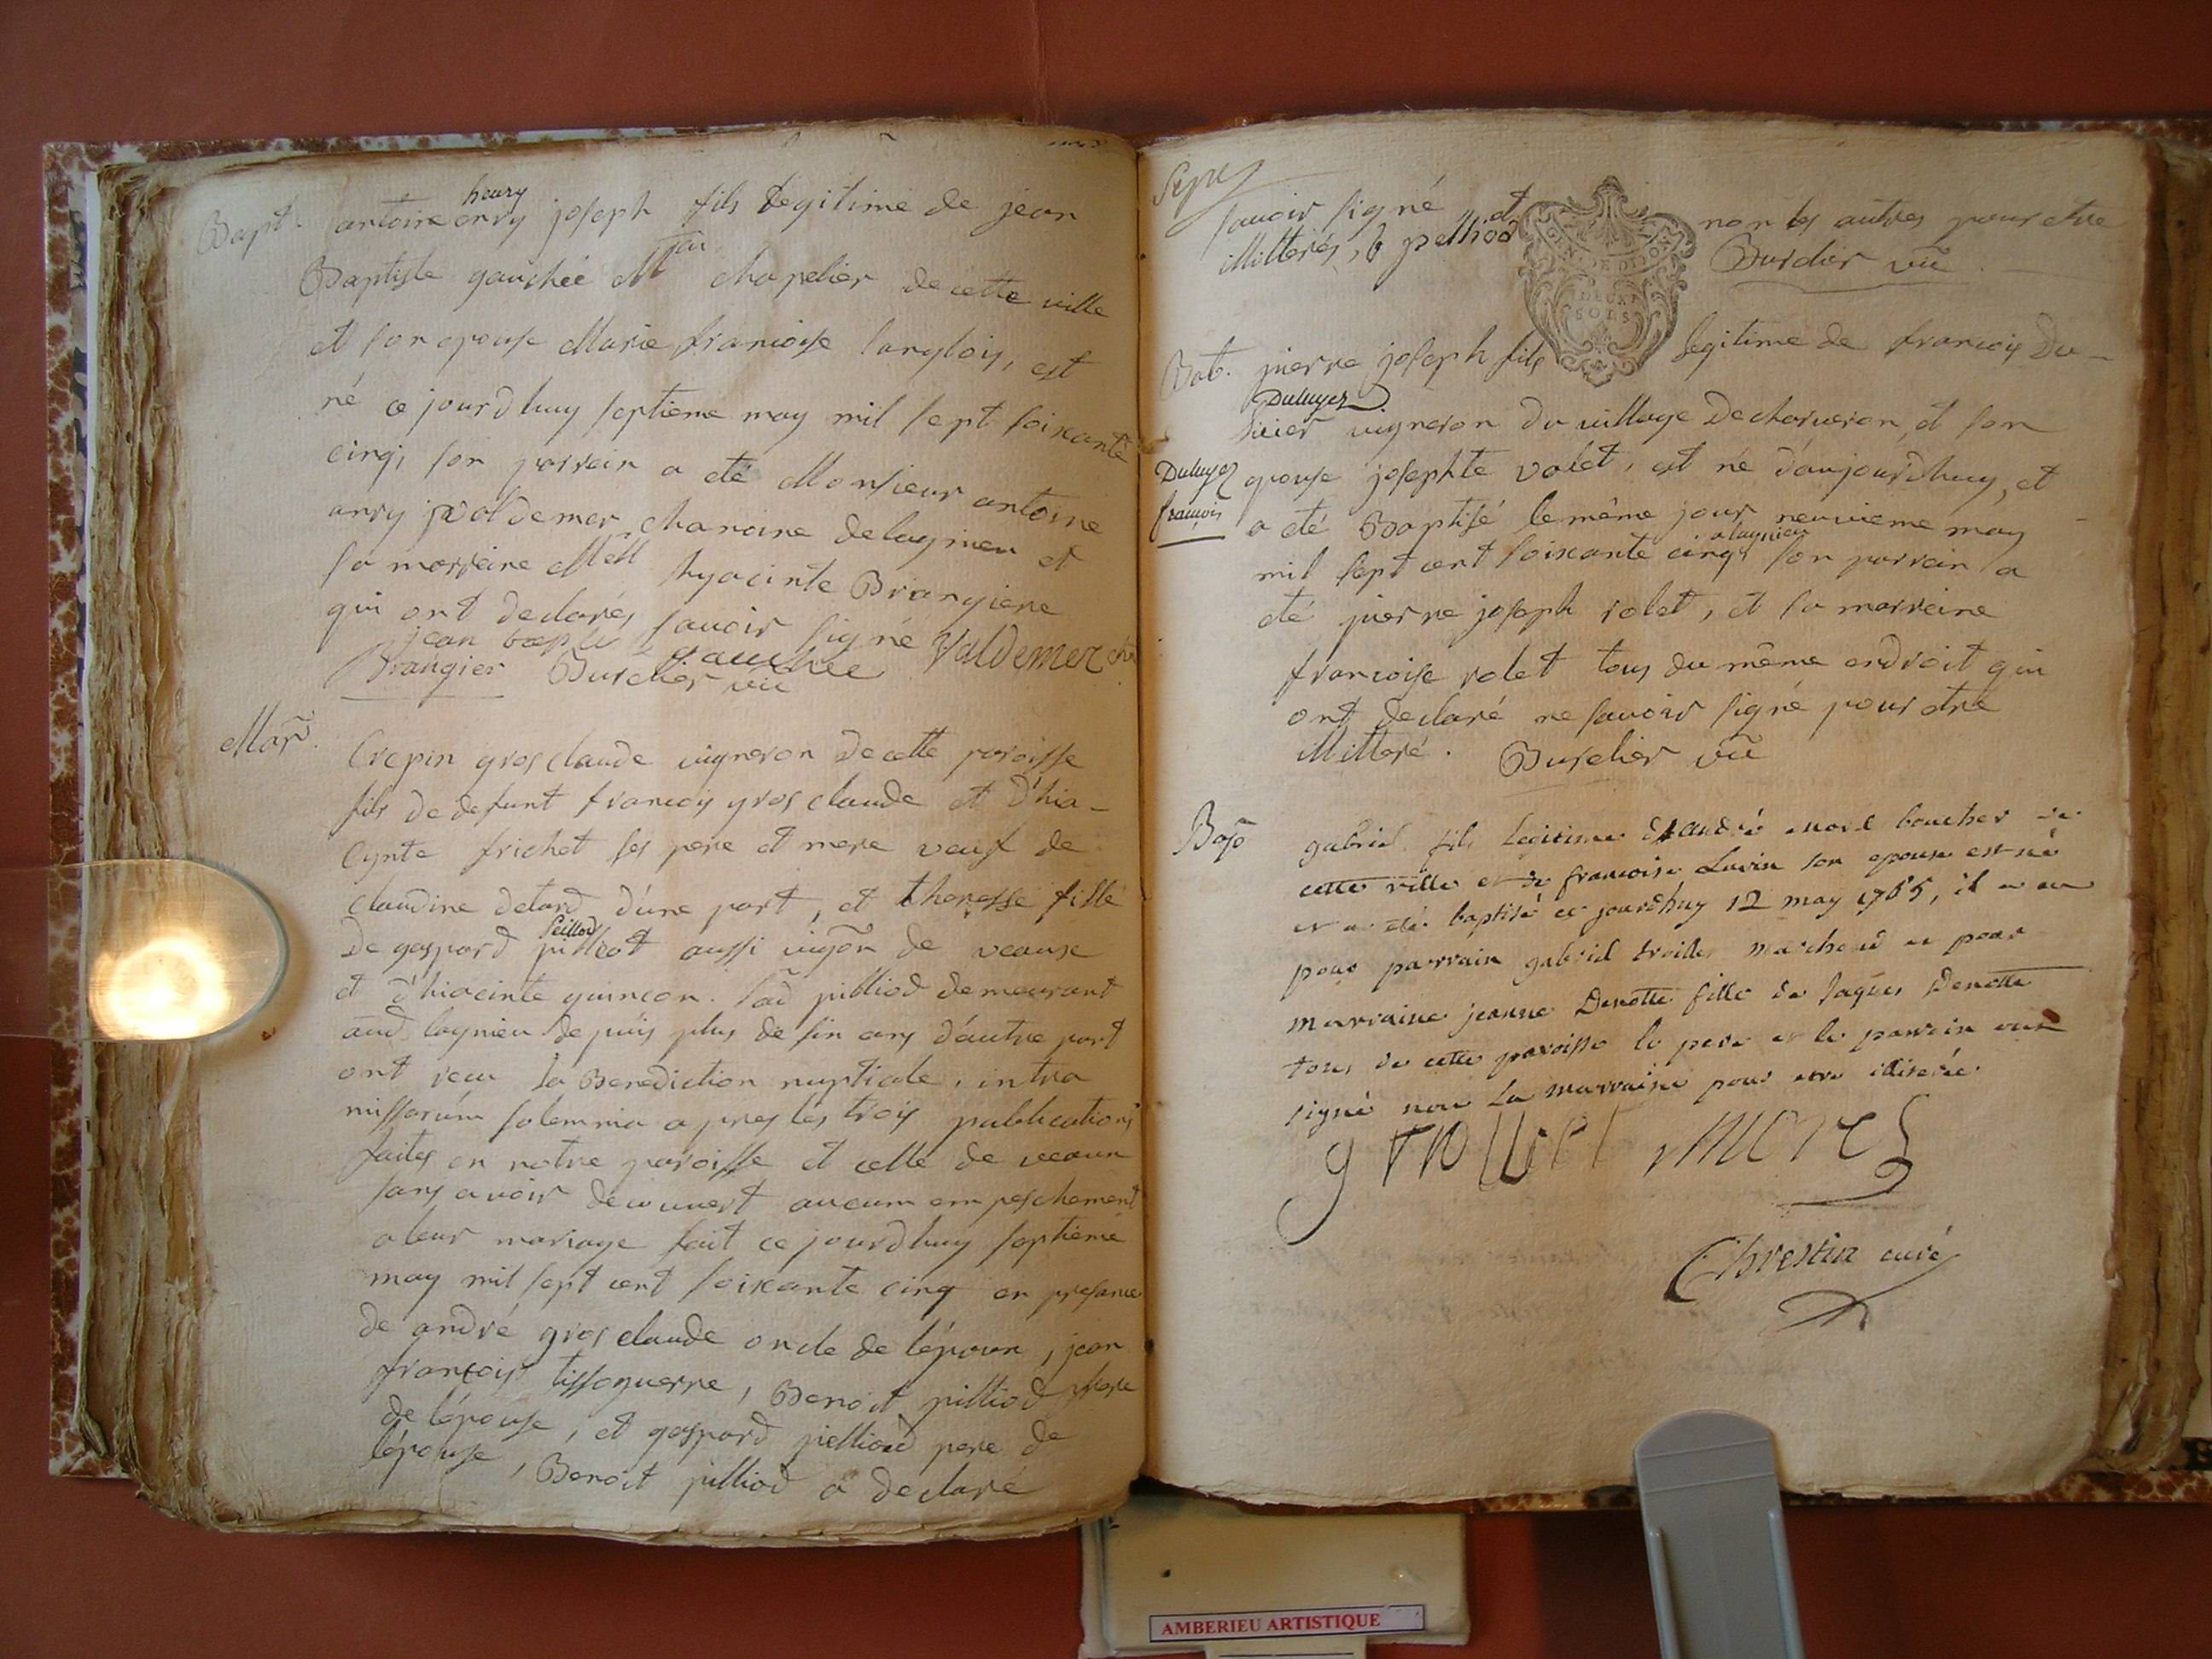 Bapt. antoine henry onry joseph fils legitime de jean
Baptiste gauchée Mtre chapelier de cette ville
et son epouse Marie francoise langlois, est
né ce jourdhuy septieme may mil sept soixante
cinq, son parrain a eté Monsieur antoine
anry valdemer chanoine de lagnieu et
sa marreine Melle hyacinte Brangiere
qui ont declarés savoir signé Valdemer
jean baptiste gauchee
Brangier Burdier vic
Mar. Crepin grosclaude vigneron de cette paroisse
fils de defunt francois grosclaude et d'hia-
cynte frichet ses pere et mere veuf de
claudine detard d'une part, et theresse fille
Peilliod
De gaspard pilleot aussi vigon de veaux
et d'hiacinte guincon. lad pilliod demeurant
aud lagnieu depuis plus de sin ans d'autre part
ont recu la Benediction nuptiale, intra
missarum solemnia apres les trois publications
faites en notre paroisse et celle de veaux
sans avoir decouvert aucum empeschement
a leur mariage fait ce jourdhuy septieme
may mil sept cent soixante cinq en presance
de andré grosclaude oncle de lépoux, jean
françois tissoguerre, Benoit pilliod frere
de lépouse, et gaspard pelliod pere de
lépouse, Benoit pilliod a declaré
Sept
savoir signé et non les autres pour etre
illitterés, b pelliod Burdier vic
GEN. DE DIJON
DEUX
SOLS
Bat. pierre joseph fils legitime de francois Du-
Duluyer
sieier vigneron du village de charveron, et son
Duluyer epouse josephte volet, est né d'aujourdhuy, et
francois a eté Baptisé le même jour neuvieme may
a lagnieu
mil sept cent soixante cinq, son parrein a
eté pierre joseph rolet, et sa marreine
francoise rolet tous du même endroit qui
ont declaré ne savoir signé pour etre
illitteré. Burdier vic
Bap gabriel fils legitime d'andré morel boucher de
cette ville et de francoise Luvin son epouse est né
et a été baptisé ce jourdhuy 12 may 1765, il a eu
pour parrain gabriel trollier marchand et pour
marraine jeanne Denotte fille de Jaques Denotte
tous de cette paroisse le pere et le parrain ont
signé non la marraine pour etre illiterée.
g trolliet mores
Chrestin curé
AMBERIEU ARTISTIQUE